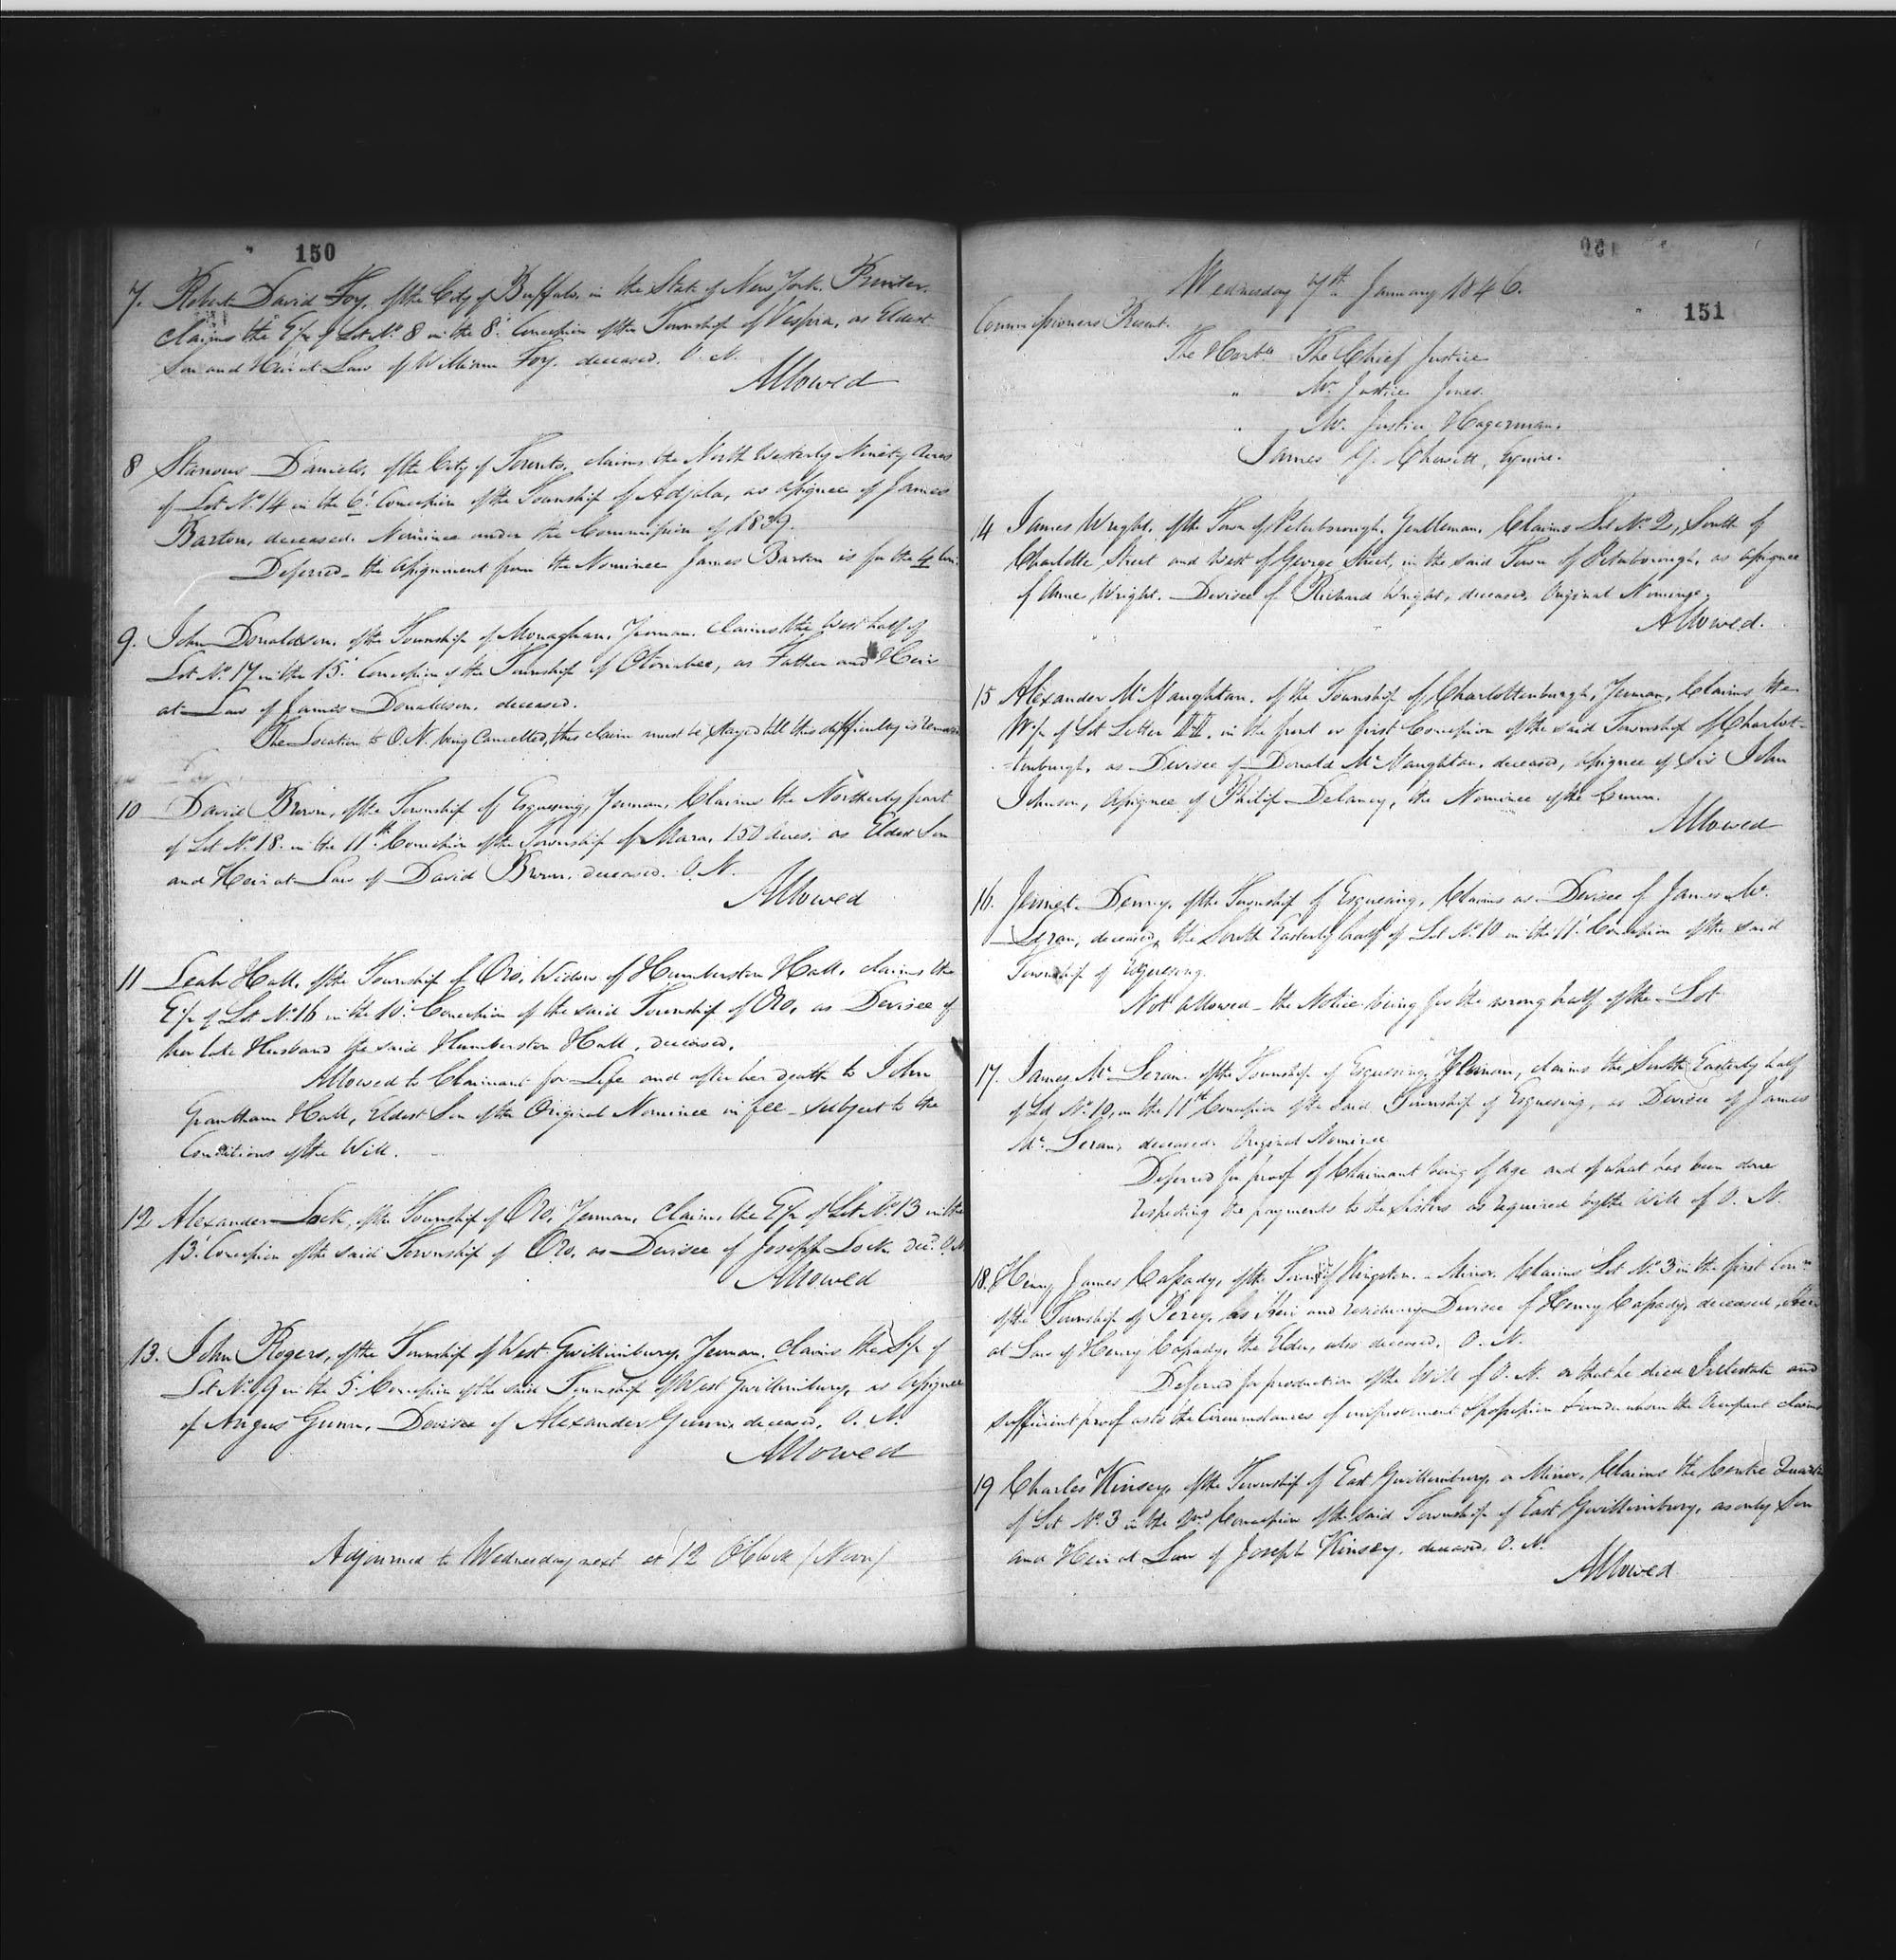 150
7. Robert David Foy, of the City of Buffalo, in the State of New York, Printer,
claims the E½ of Lot No. 8 in the 8th Concession of the Township of Vespra, as Eldest
Son and Heir at Law of William Foy, deceased. O. N.
Allowed
8 Daniels, of the City of Toronto, claims the North Westerly Ninety Acres
of Lot No. 14 in the 6th Concession of the Township of Adjala, as assignee of James
Barton, deceased. Nominee under the Commission of 1839.
Deferred – the assignment from the Nominee James Barton is for the 4 Con:
9. John Donaldson, of the Township of Monaghan, Yeoman, claims the West half of
Lot No. 17 in the 15th Concession of the Township of Otonabee, as Father and Heir
at Law of James Donaldson, deceased.
The Location to O.N. being Cancelled, this claim must be stayed till this difficulty is removed
10 David Brown, of the Township of Esquesing, Yeoman, Claims the Northerly part
of Lot No. 18 in the 11th Concession of the Township of Mara, 150 Acres, as Eldest Son
and Heir at Law of David Brown, deceased. O. N.
Allowed
11 Leah Hall, of the Township of Oro, Widow of Humberston Hall, claims the
E½ of Lot No. 16 in the 10th Concession of the said Township of Oro, as Devisee of
her late Husband the said Humberston Hall, deceased.
Allowed to Claimant for Life and after her death to John
Grantham Hall, Eldest Son of the Original Nominee in fee – subject to the
Conditions of the Will.
12 Alexander Lock, of the Township of Oro, Yeoman, Claims the E½ of Lot No. 13 in the
13th Concession of the said Township of Oro, as Devisee of Joseph Lock, decd. O. N.
Allowed
13. John Rogers, of the Township of West Gwillimbury, Yeoman, claims the S½ of
Lot No. 9 in the 5th Concession of the said Township of West Gwillimbury, as assignee
of Angus Gunn, Devisee of Alexander Gunn, deceased, O. N.
Allowed
Adjourned to Wednesday next at 12 O'Clock (Noon)
Wednesday 7th January 1846.
151
Commissioners Present.
The Honble The Chief Justice
" Mr. Justice Jones.
" Mr. Justice Hagerman.
James G. Chewett, Esquire.
14 James Wright, of the Town of Peterborough, Gentleman, Claims Lot No. 2, South of
Charlotte Street and West of George Street, in the said Town of Peterborough, as assignee
of Anne Wright, Devisee of Richard Wright, deceased, Original Nominee.
Allowed.
15 Alexander McNaughtan, of the Township of Charlottenburgh, Yeoman, Claims the
W½ of Lot Letter in the front or first Concession of the said Township of Charlot-
-tenburgh, as Devisee of Donald McNaughtan, deceased, assignee of Sir John
Johnson, assignee of Philip Delaney, the Nominee of the Crown.
Allowed
16. Jennet Denny, of the Township of Esquesing, Claims as Devisee of James Mc
Leran, deceased, the South Easterly half of Lot No. 10 in the 11th Concession of the said
Township of Esquesing.
Not allowed – the Notice being for the wrong half of the Lot.
17. James McLeran, of the Township of Esquesing, Yeoman, claims the South Easterly half
of Lot No. 10, in the 11th Concession of the said Township of Esquesing, as Devisee of James
McLeran, deceased. Original Nominee
Deferred for proof of Claimant being of age and of what has been done
respecting the payments to the Sisters as required by the Will of O. N.
18. Henry James Cassady, of the Town of Kingston, – Minor, Claims Lot No. 3 in the first Con.
of the Township of Percy, as Heir and residuary Devisee of Henry Cassady, deceased, Heir
at Law of Henry Cassady, the Elder, also deceased, O. N.
Deferred for production of the Will of O. N. or that he died Intestate and
sufficient proof as to the Circumstances of improvement & possession & under whom the Occupant claims
19 Charles Kinsey, of the Township of East Gwillimbury, a Minor, Claims the Centre Quarter
of Lot No. 3 in the 2nd Concession of the said Township of East Gwillimbury, as only Son
and Heir at Law of Joseph Kinsey, deceased, O. N.
Allowed